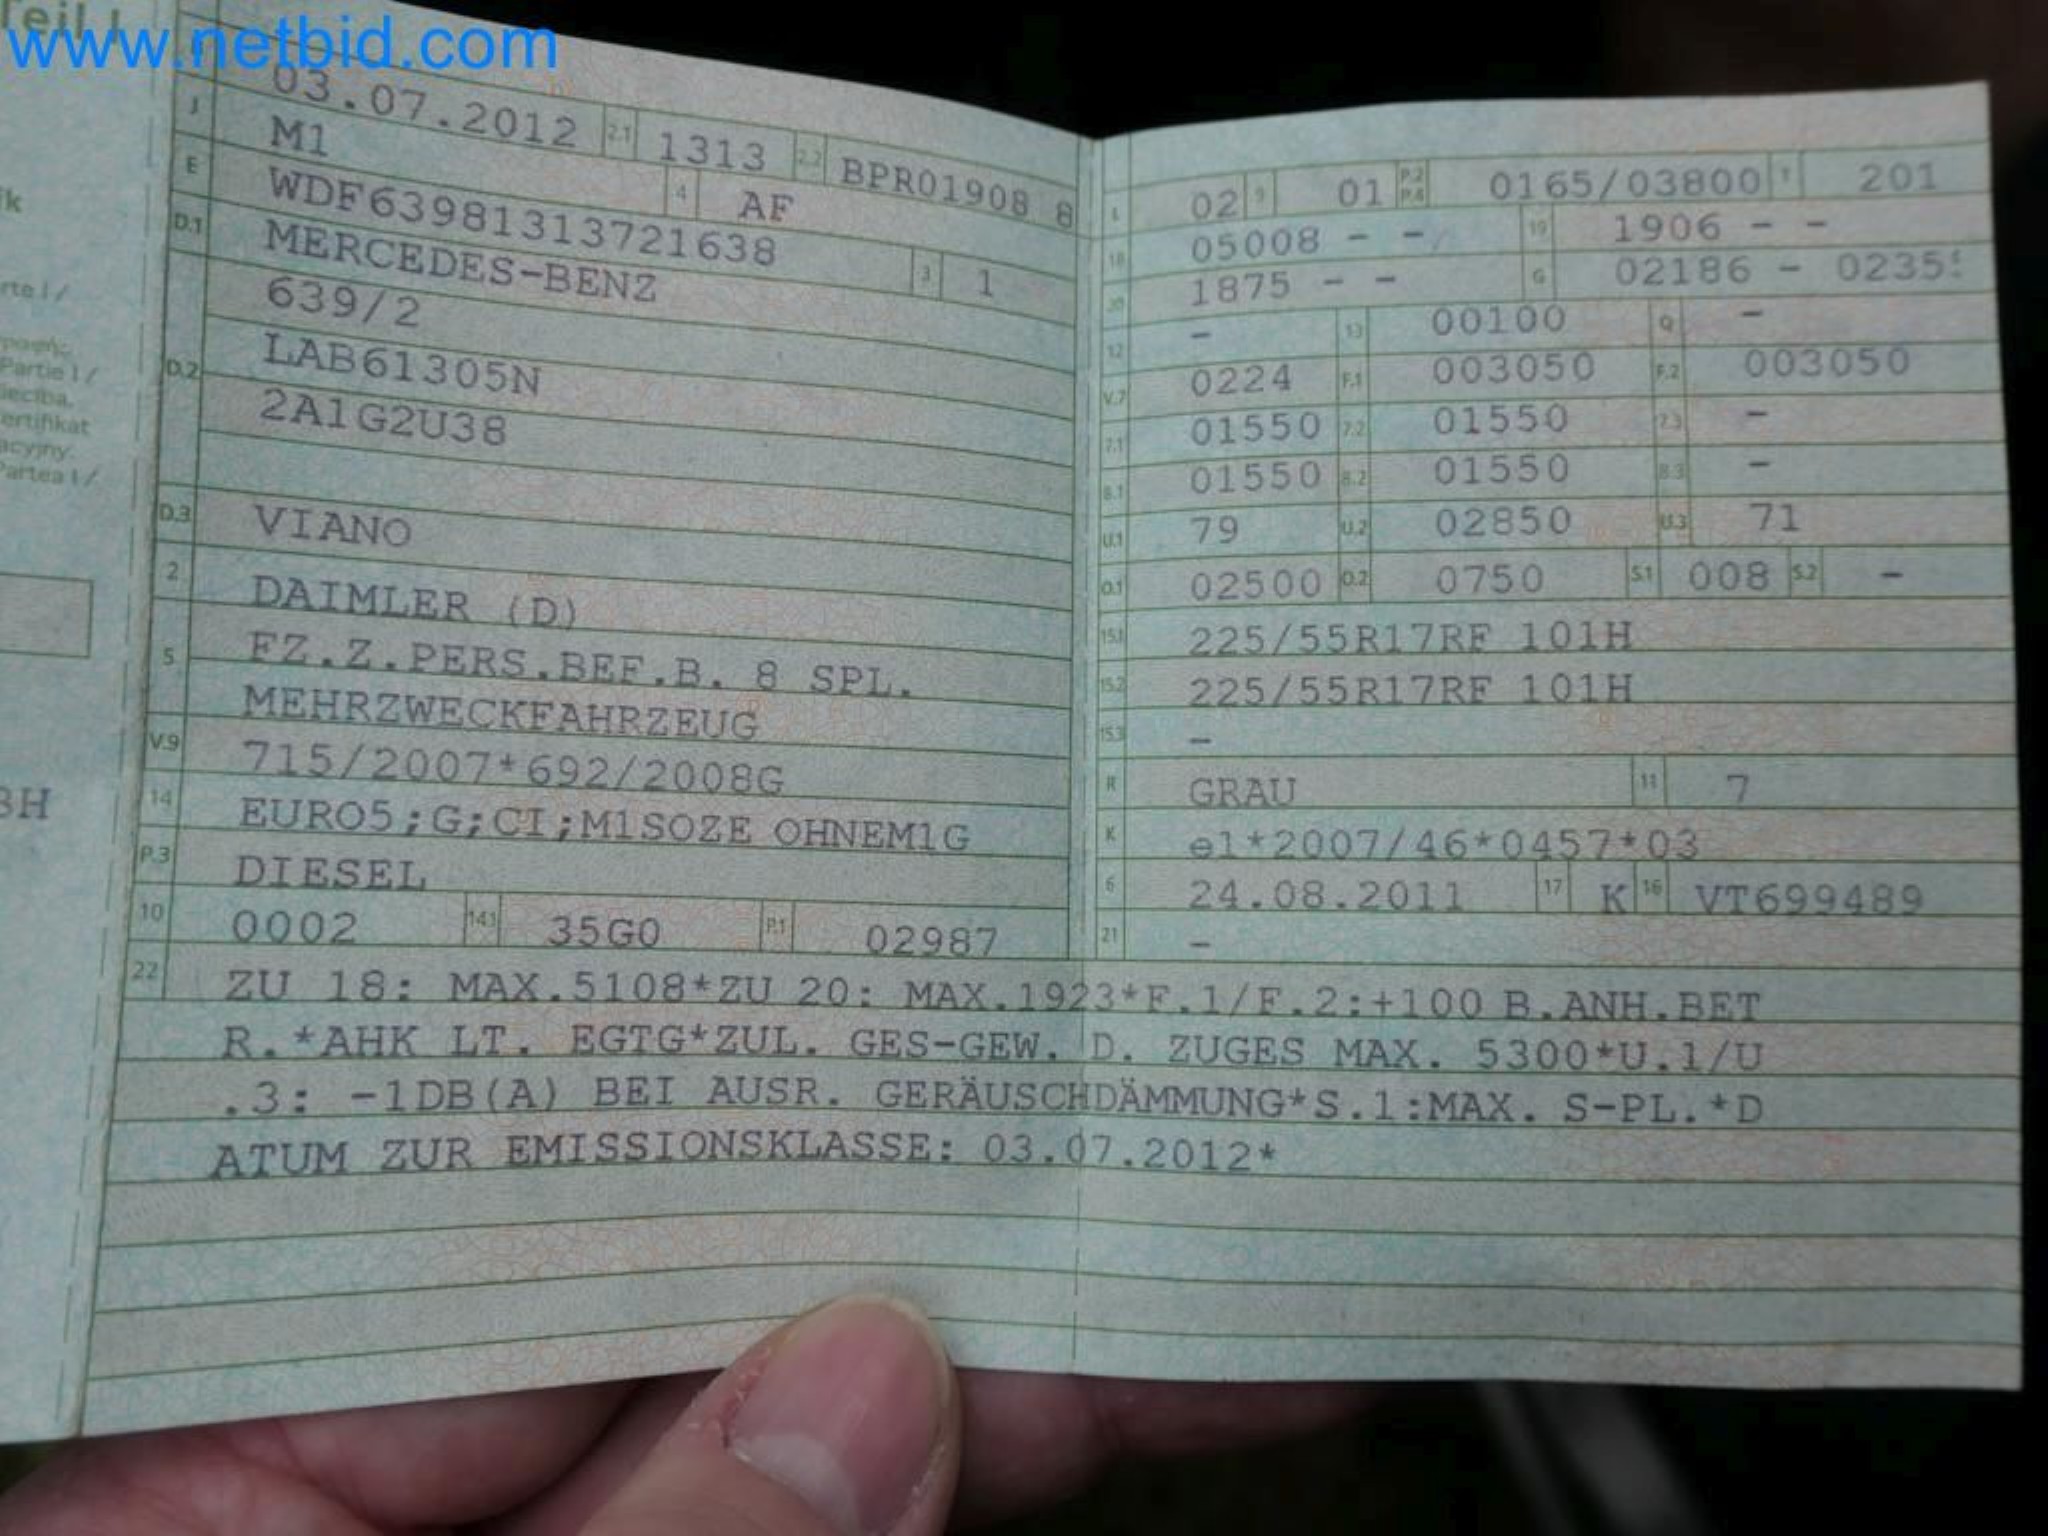 Teil I
www.netbid.com
03.07.2012 2.1 1313 2.2 BPR01908 8
J M1 4 AF
E WDF63981313721638 3 1
D.1 MERCEDES-BENZ
D.2 639/2
LAB61305N
2A1G2U38
D.3 VIANO
2 DAIMLER (D)
5 FZ.Z.PERS.BEF.B. 8 SPL.
MEHRZWECKFAHRZEUG
V.9 715/2007*692/2008G
14 EURO5;G;CI;M1SOZE OHNEM1G
P.3 DIESEL
10 0002 14.1 35G0 P.1 02987
L 02 9 01 P.2 P.4 0165/03800 T 201
18 05008 - - 19 1906 - -
20 1875 - - G 02186 - 0235
12 - 13 00100 Q -
V.7 0224 F.1 003050 F.2 003050
7.1 01550 7.2 01550 7.3 -
8.1 01550 8.2 01550 8.3 -
U.1 79 U.2 02850 U.3 71
O.1 02500 O.2 0750 S.1 008 S.2 -
15.1 225/55R17RF 101H
15.2 225/55R17RF 101H
15.3 -
R GRAU 11 7
K e1*2007/46*0457*03
6 24.08.2011 17 K 16 VT699489
21 -
22 ZU 18: MAX.5108*ZU 20: MAX.1923*F.1/F.2:+100 B.ANH.BET
R.*AHK LT. EGTG*ZUL. GES-GEW. D. ZUGES MAX. 5300*U.1/U
.3: -1DB(A) BEI AUSR. GERÄUSCHDÄMMUNG*S.1:MAX. S-PL.*D
ATUM ZUR EMISSIONSKLASSE: 03.07.2012*
ik
rte I /
Partie I /
ertifikat
Partea I /
BH